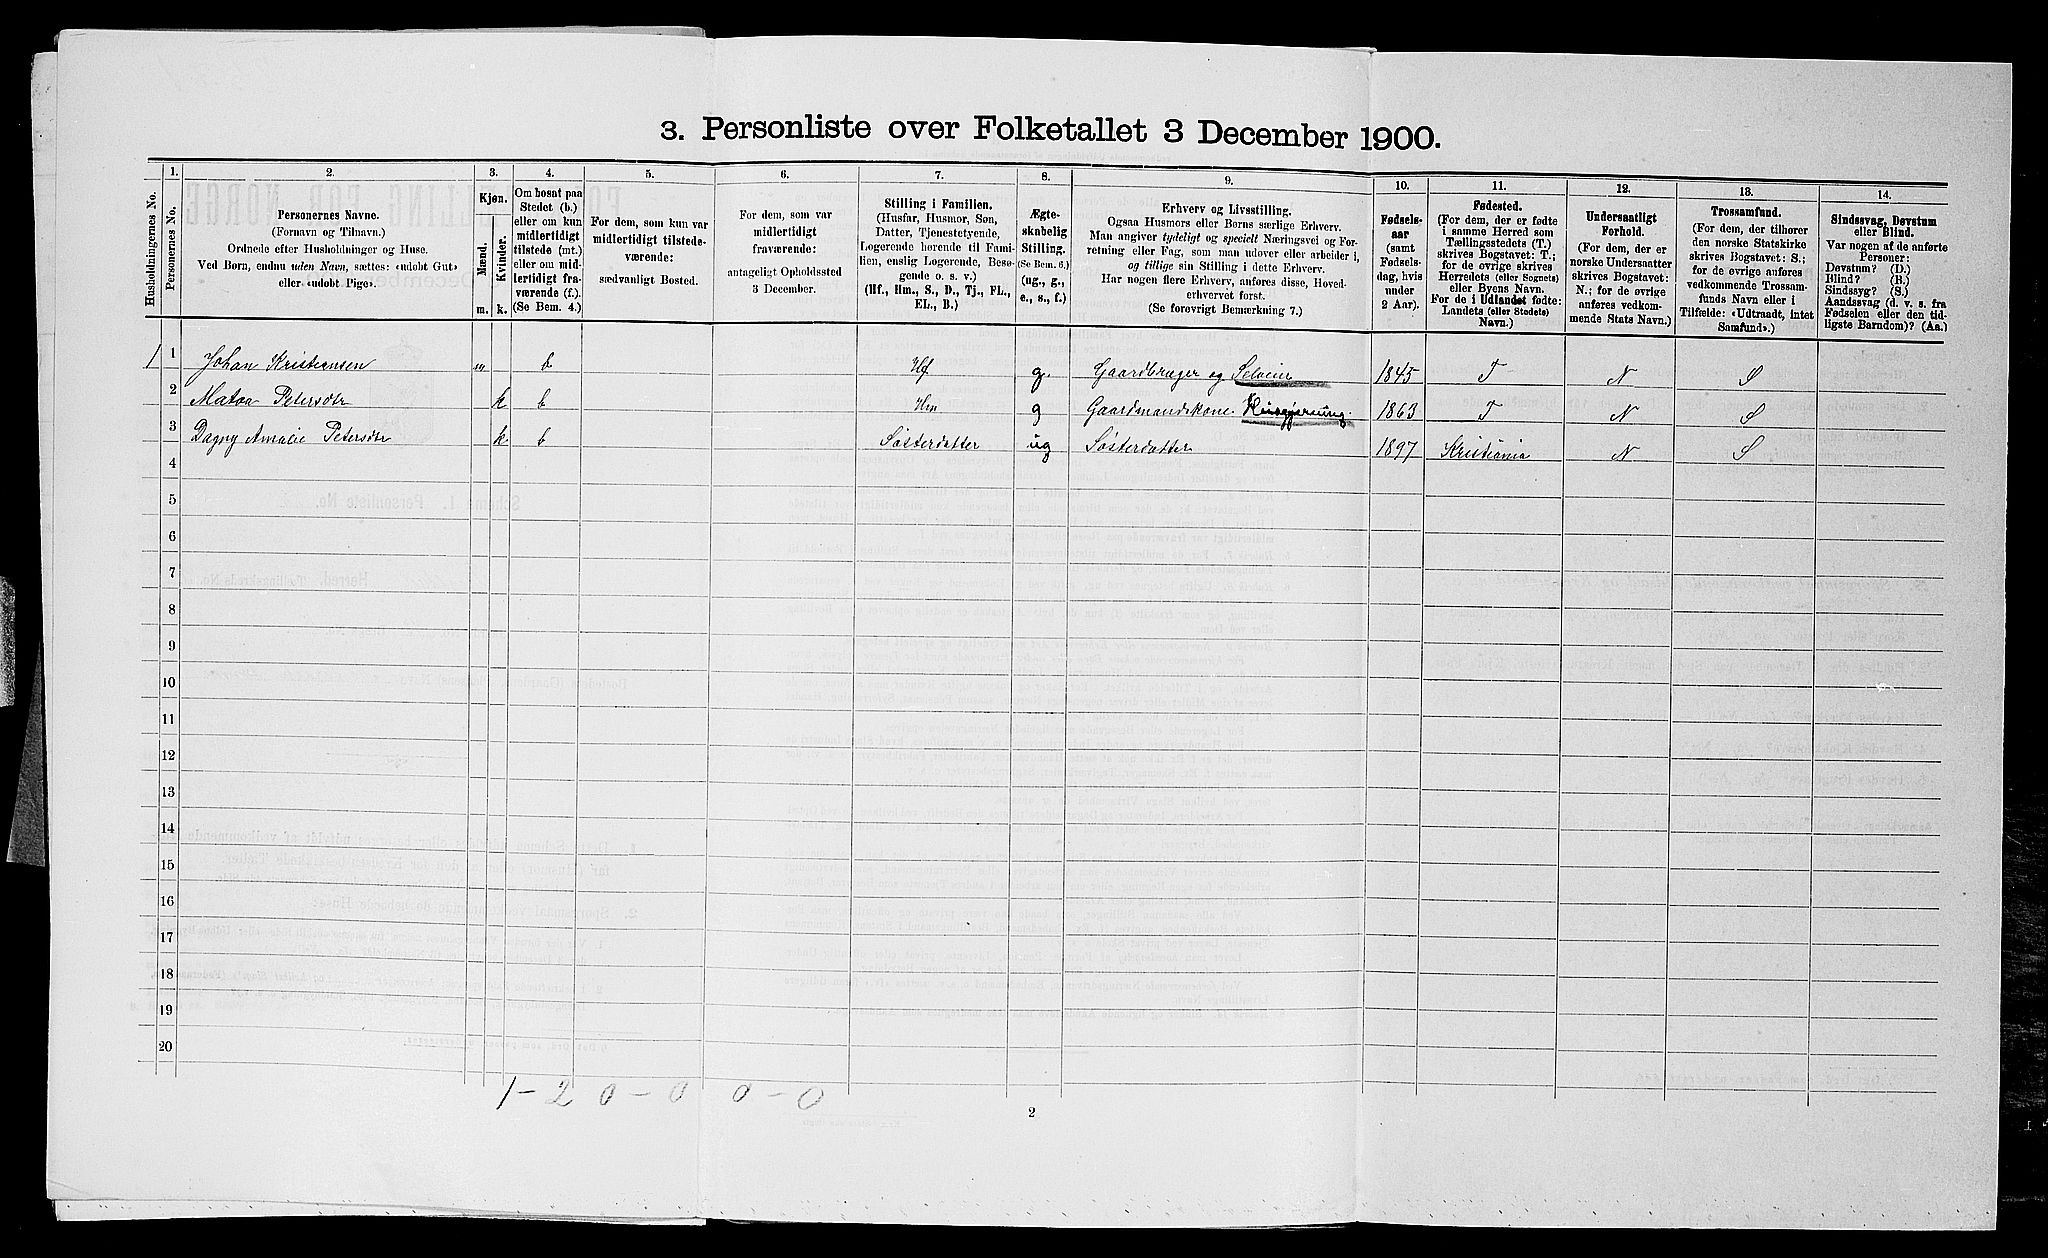 3. Personliste over Folketallet 3 December 1900.
1. 2. 3. 4. 5. 6. 7. 8. 9. 10. 11. 12. 13. 14.
Husholdningernes No.
Personernes No.
Personernes Navne.
(Fornavn og Tilnavn.)
Ordnede efter Husholdninger og Huse.
Ved Børn, endnu uden Navn, sættes: «udøbt Gut»
eller «udøbt Pige».
Kjøn.
Mænd.
Kvinder.
m. k.
Om bosat paa
Stedet (b.)
eller om kun
midlertidigt
tilstede (mt.)
eller om mid-
lertidigt fra-
værende (f.).
(Se Bem. 4.)
For dem, som kun var
midlertidigt tilstede-
værende:
sædvanligt Bosted.
For dem, som var
midlertidigt
fraværende:
antageligt Opholdssted
3 December.
Stilling i Familien.
(Husfar, Husmor, Søn,
Datter, Tjenestetyende,
Logerende hørende til Fami-
lien, enslig Logerende, Besø-
gende o. s. v.)
(Hf., Hm., S., D., Tj., FL.,
EL., B.)
Ægte-
skabelig
Stilling.
(Se Bem. 6.)
(ug., g.,
e., s., f.)
Erhverv og Livsstilling.
Ogsaa Husmors eller Børns særlige Erhverv.
Man angiver tydeligt og specielt Næringsvei og For-
retning eller Fag, som man udøver eller arbeider i,
og tillige sin Stilling i dette Erhverv.
Har nogen flere Erhverv, anføres disse, Hoved-
erhvervet først.
(Se forøvrigt Bemærkning 7.)
Fødsels-
aar
(samt
Fødsels-
dag, hvis
under
2 Aar).
Fødested.
(For dem, der er fødte
i samme Herred som
Tællingsstedets (T.)
skrives Bogstavet: T.;
for de øvrige skrives
Herredets (eller Sognets)
eller Byens Navn.
For de i Udlandet fødte:
Landets (eller Stedets)
Navn.)
Undersaatligt
Forhold.
(For dem, der er
norske Undersaatter
skrives Bogstavet:
N.; for de øvrige
anføres vedkom-
mende Stats Navn.)
Trossamfund.
(For dem, der tilhører
den norske Statskirke
skrives Bogstavet: S.;
for de øvrige anføres
vedkommende Trossam-
funds Navn eller i
Tilfælde: «Udtraadt, intet
Samfund».)
Sindssvag, Døvstum
eller Blind.
Var nogen af de anførte
Personer:
Døvstum? (D.)
Blind? (B.)
Sindssyg? (S.)
Aandssvag (d. v. s. fra
Fødselen eller den tid-
ligste Barndom)? (Aa.)
1 1 Johan Kristiansen m b Hf g. Gaardbruger og Selveier 1845 T N S
2 Matea Petersdtr k b Hm g Gaardmandskone. Husgjerning. 1863 T N S
3 Dagny Amalie Petersdtr k b Søsterdatter ug Søsterdatter 1897 Kristiania N S
4
5
6
7
8
9
10
11
12
13
14
15
16
17
18
19
20
1 - 2 0 - 0 0 - 0
2